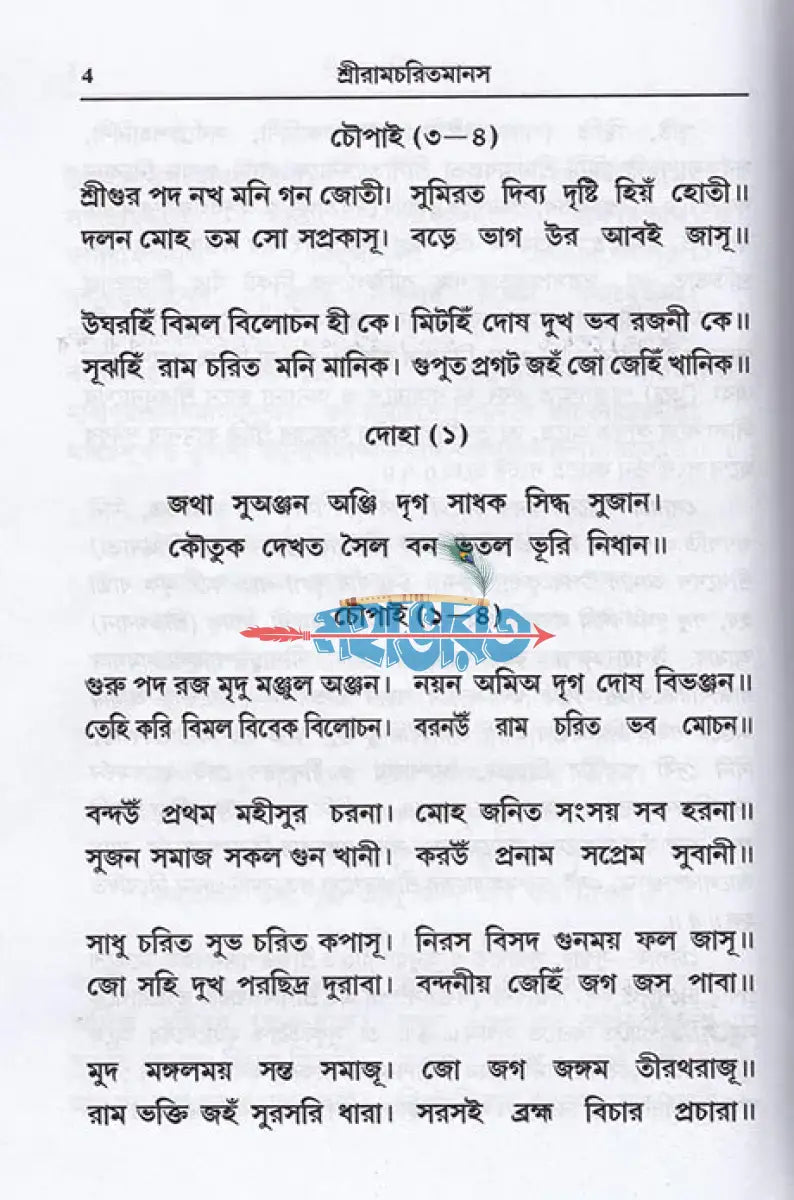 4 শ্রীরামচরিতমানস
চৌপাই (৩—৪)
শ্রীগুর পদ নখ মনি গন জোতী। সুমিরত দিব্য দৃষ্টি হিয়ঁ হোতী॥
দলন মোহ তম সো সপ্রকাসূ। বড়ে ভাগ উর আবই জাসূ॥
উঘরহিঁ বিমল বিলোচন হী কে। মিটহিঁ দোষ দুখ ভব রজনী কে॥
সূঝহিঁ রাম চরিত মনি মানিক। গুপুত প্রগট জহঁ জো জেহিঁ খানিক॥
দোহা (১)
জথা সুঅঞ্জন অঞ্জি দৃগ সাধক সিদ্ধ সুজান।
কৌতুক দেখত সৈল বন ভূতল ভূরি নিধান॥
চৌপাই (১—৪)
মহাভারত
গুরু পদ রজ মৃদু মঞ্জুল অঞ্জন। নয়ন অমিঅ দৃগ দোষ বিভঞ্জন॥
তেহি করি বিমল বিবেক বিলোচন। বরনউঁ রাম চরিত ভব মোচন॥
বন্দউঁ প্রথম মহীসুর চরনা। মোহ জনিত সংসয় সব হরনা॥
সুজন সমাজ সকল গুন খানী। করউঁ প্রনাম সপ্রেম সুবানী॥
সাধু চরিত সুভ চরিত কপাসূ। নিরস বিসদ গুনময় ফল জাসূ॥
জো সহি দুখ পরছিদ্র দুরাবা। বন্দনীয় জেহিঁ জগ জস পাবা॥
মুদ মঙ্গলময় সন্ত সমাজূ। জো জগ জঙ্গম তীরথরাজূ॥
রাম ভক্তি জহঁ সুরসরি ধারা। সরসই ব্রহ্ম বিচার প্রচারা॥